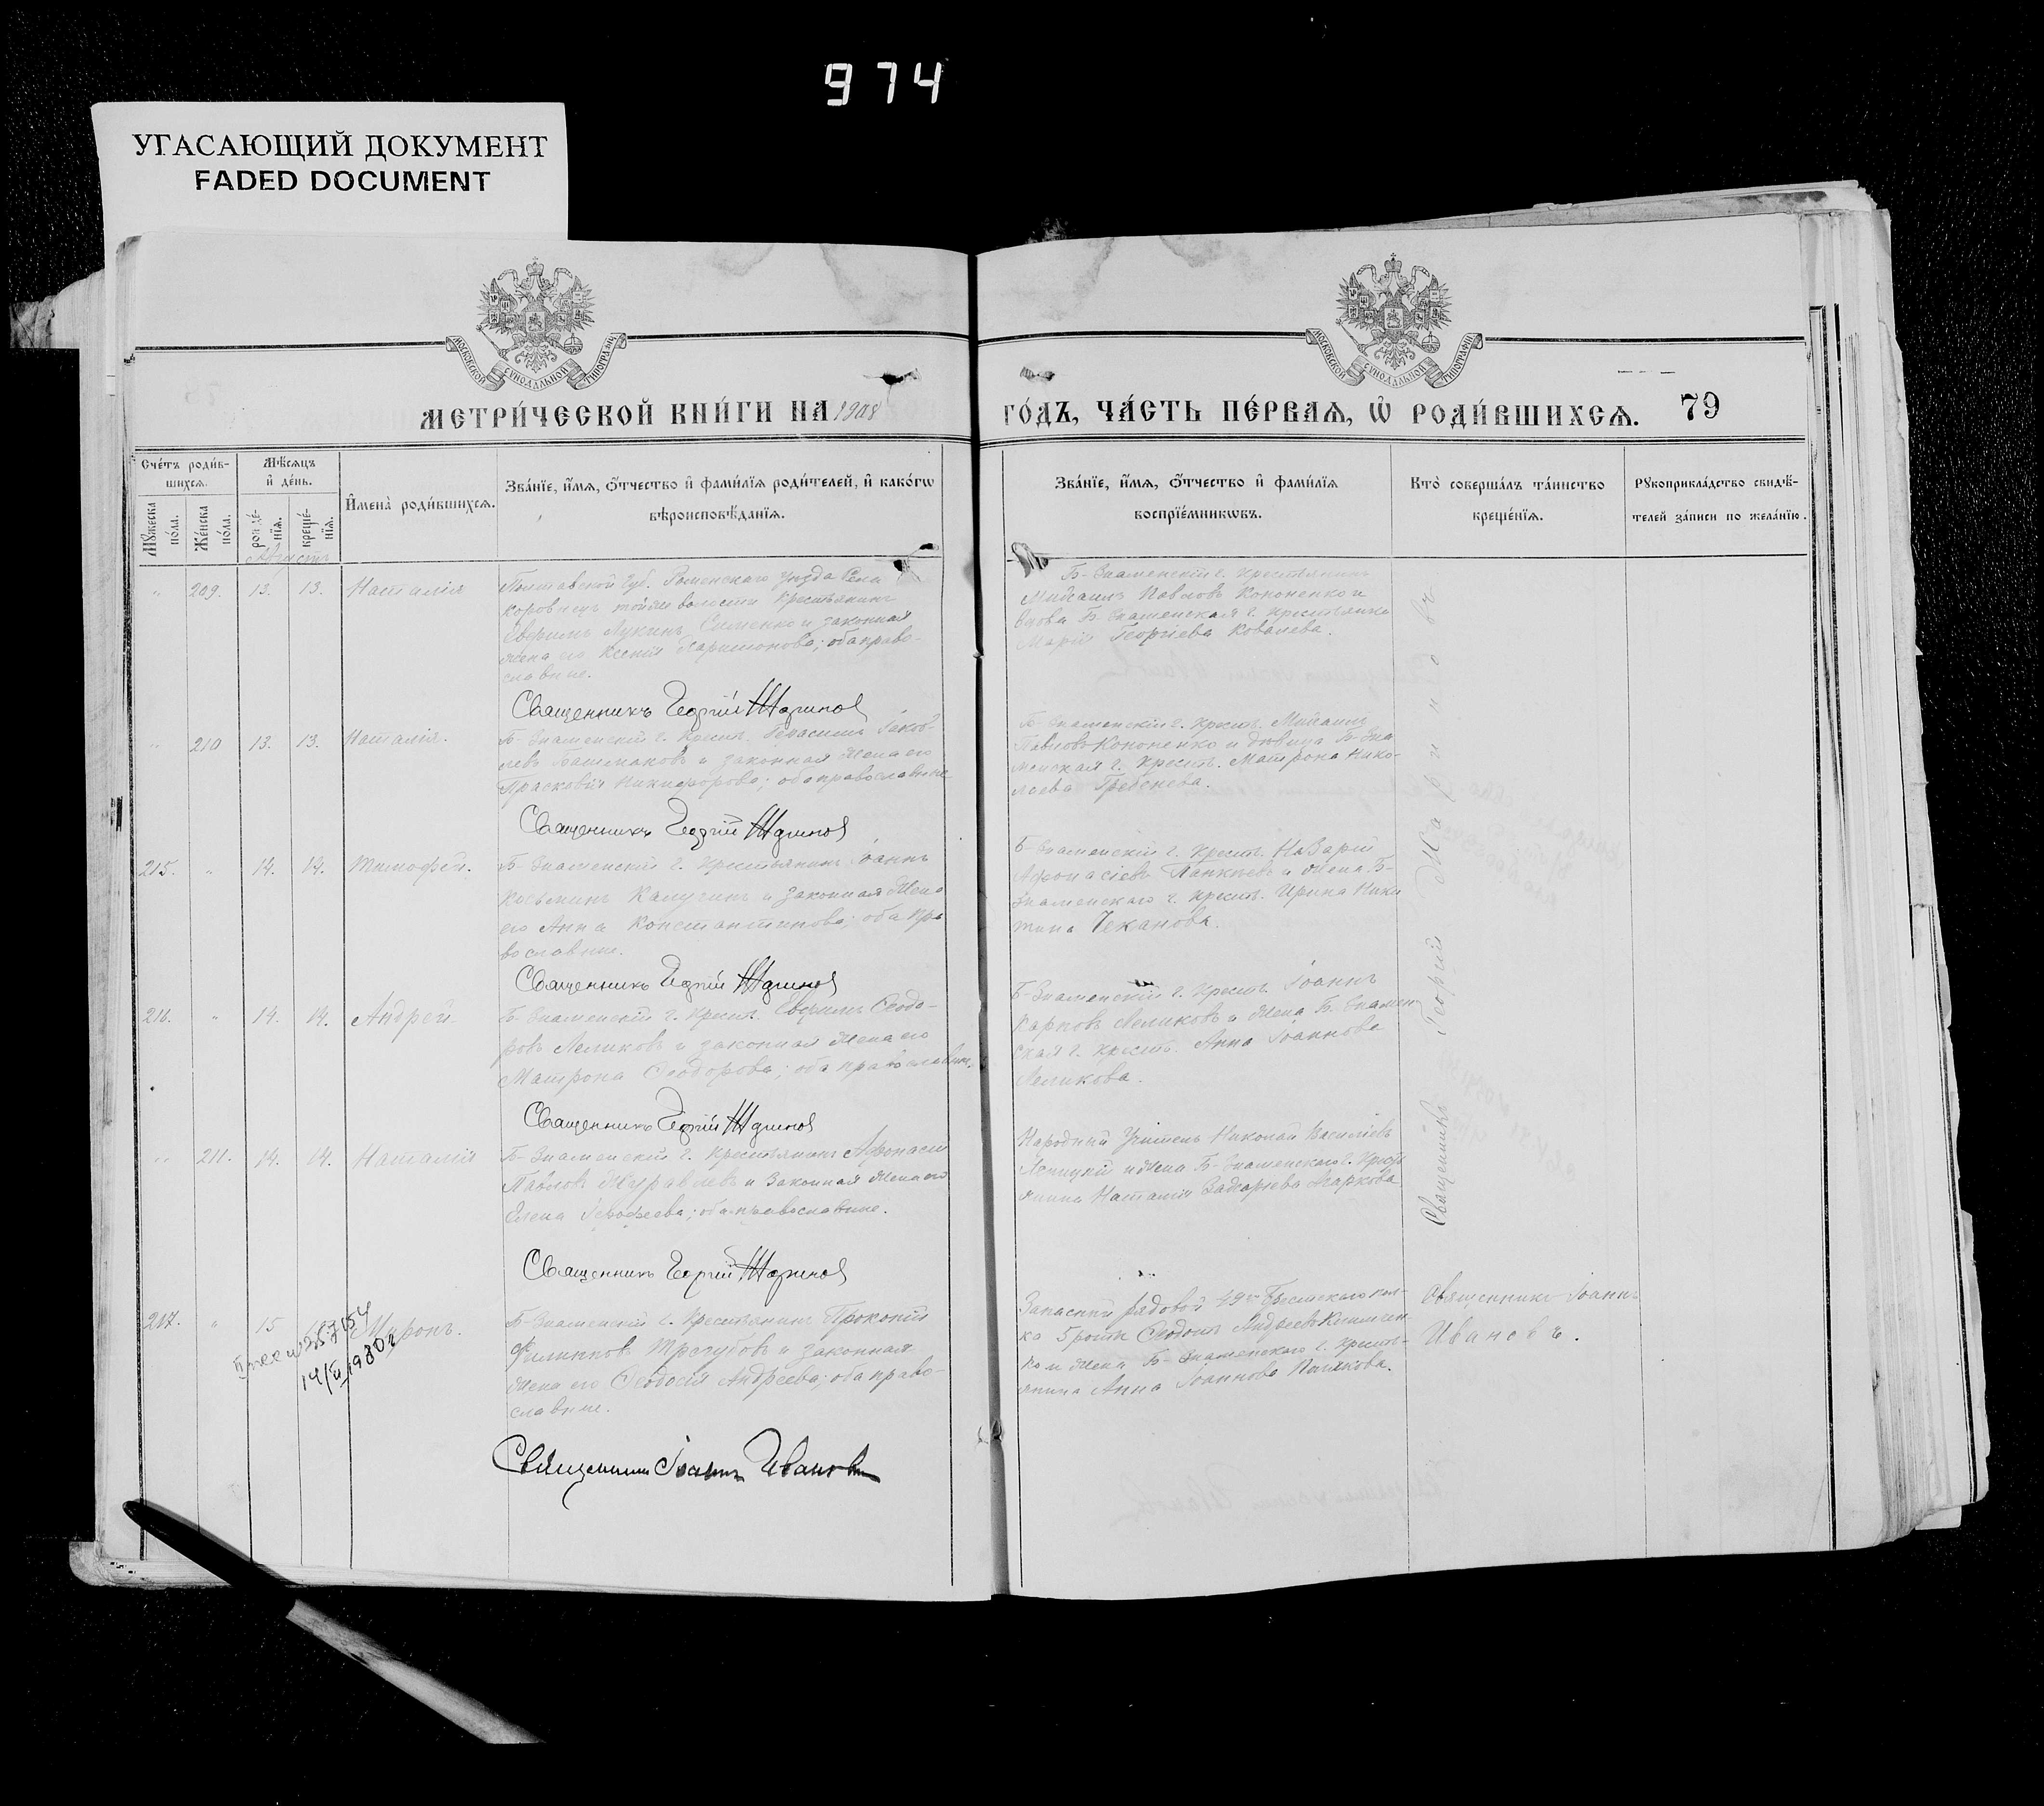 974
УГАСАЮЩИЙ ДОКУМЕНТ
FADED DOCUMENT
МОСКОВСКОЙ СѴНОДАЛЬНОЙ ТИПОГРАФІИ
МОСКОВСКОЙ СѴНОДАЛЬНОЙ ТИПОГРАФІИ
МЕТРИ́ЧЕСКОЙ КНИ́ГИ НА 1908
ГО́ДЪ, ЧА́СТЬ ПЕ́РВАѦ, Ѡ҆ РОДИ́ВШИХСѦ. 79
Сче́тъ роди́в-
шихсѧ.
Мꙋ́жеска по́ла.
Же́нска по́ла.
Мѣ́сѧцъ
и҆ де́нь.
рожде́-
нїѧ.
креще́-
нїѧ.
И҆мена̀ роди́вшихсѧ.
Зва́нїе, и҆́мѧ, ѻ҆́тчество и҆ фами́лїѧ роди́телей, и҆ како́гѡ
вѣроисповѣ́данїѧ.
Зва́нїе, и҆́мѧ, ѻ҆́тчество и҆ фами́лїѧ
воспрїе́мникѡвъ.
Кто̀ соверша́лъ та́инство
креще́нїѧ.
Рꙋкоприкла́дство свидѣ́-
телей за́писи по жела́нїю.
Августъ
" 209. 13. 13. Наталія
Полтавской губ. Роменскаго уѣзда Села
Коровинцъ тойже волости крестьянинъ
Евфимъ Лукинъ Сименко и законная
жена его Ксенія Харитонова; оба право-
славные.
Священникъ Георгій Жариновъ
Б-Знаменскій г. крестьянинъ
Михаилъ Павловъ Кононенко и
вдова Б-Знаменская г. крестьянка
Марія Георгіева Ковалева.
" 210 13. 13. Наталія.
Б-Знаменскій г. крест. Герасимъ Іаков-
левъ Башмаковъ и законная жена его
Прасковія Никифорова; оба православные
Священникъ Георгій
Б-Знаменскій г. крест. Михаилъ
Павловъ Кононенко и дѣвица Б-Зна
менская г. крест. Матрона Нико-
лаева Гребенева.
215. " 14. 14. Тимофей.
Б-Знаменскій г. крестьянинъ Іоаннъ
Косьминъ Калугинъ и законная жена
его Анна Константинова; оба пра
вославные.
Священникъ Георгій
Б-Знаменскій г. крест. Назарій
Афонасіевъ и жена Б-
Знаменскаго г. крест. Ирина Ники
тина Чеканова.
216. " 14. 14. Андрей
Б-Знаменскій г. крест. Евфимъ Ѳеодо-
ровъ Леликовъ и законная жена его
Матрона Ѳеодорова; оба православны.
Священникъ Георгій
Б-Знаменскій г. крест. Іоаннъ
Карповъ Леликовъ и жена Б-Знамен-
ская г. крест. Анна Іоаннова
Леликова.
" 211. 14. 14. Наталія
Б-Знаменскій г. крестьянинъ Афонасій
Павловъ Журавлевъ и законная жена его
Елена Іерофеева; оба православные.
Священникъ Георгій
Народный Учитель Николай Василіевъ
и жена Б-Знаменскаго г. крест
янина Наталія Захаріева Маркова
Священникъ Георгій
217. " 15 Миронъ.
14/VI 1980г
Б-Знаменскій г. крестьянинъ Прокопій
Филипповъ Трегубовъ и законная
жена его Ѳеодосія Андреева; оба право-
славные.
Священникъ Іоаннъ Ивановъ
Запасный рядовой 49го Брестскаго пол-
ка 5 роты Ѳедотъ Андреевъ
ко и жена Б-Знаменскаго г. кресть-
янина Анна Іоаннова Полякова.
Священникъ Іоаннъ
Ивановъ.